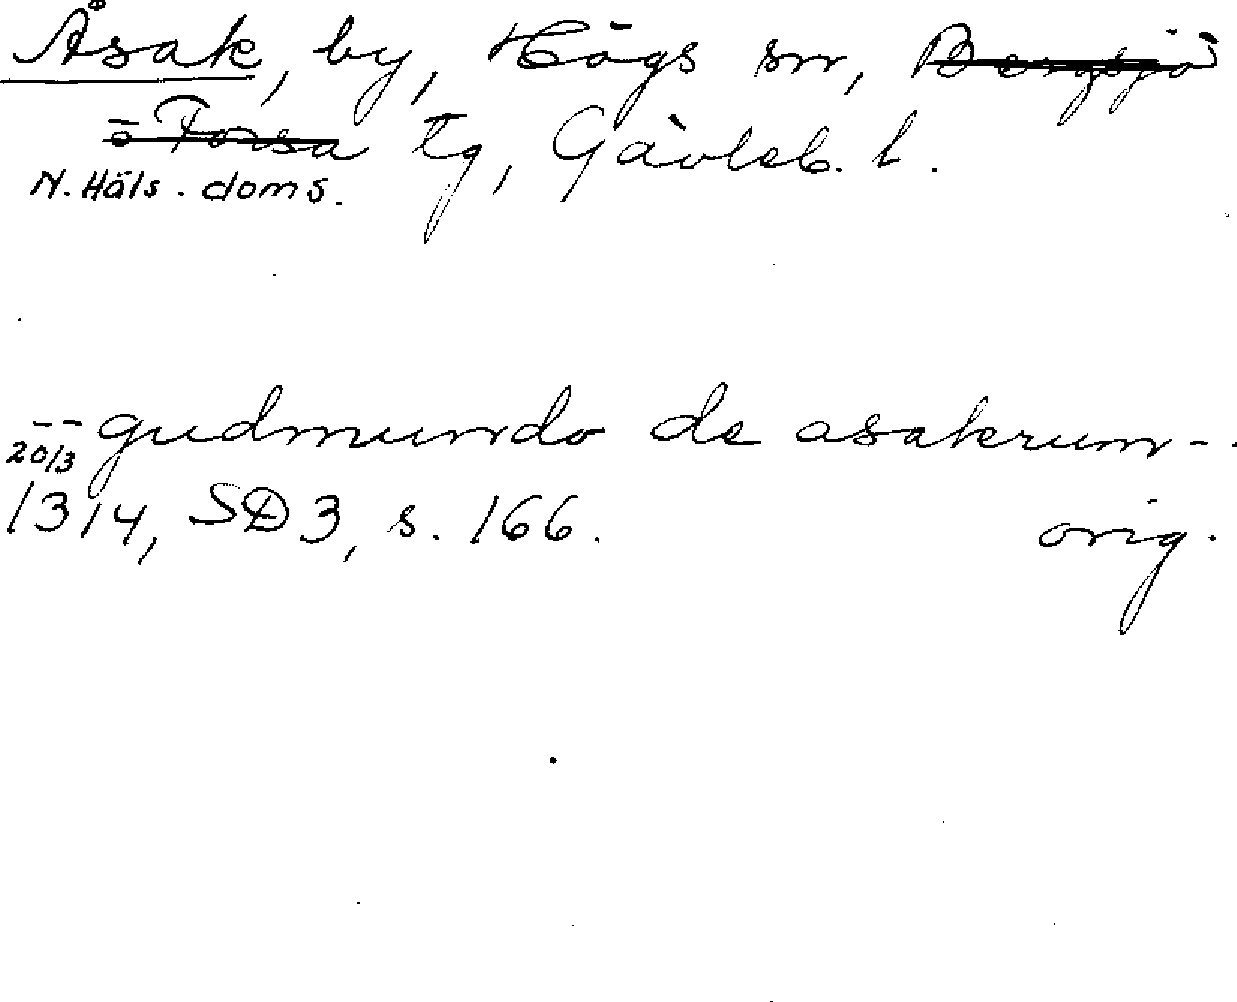 Åsak, by, Högs sn, Bergsjö
o Forsa tg, Gävleb. l.
N. Häls. doms.
-- gudmundo de asakrum --
20/3
1314, SD 3, s. 166. orig.